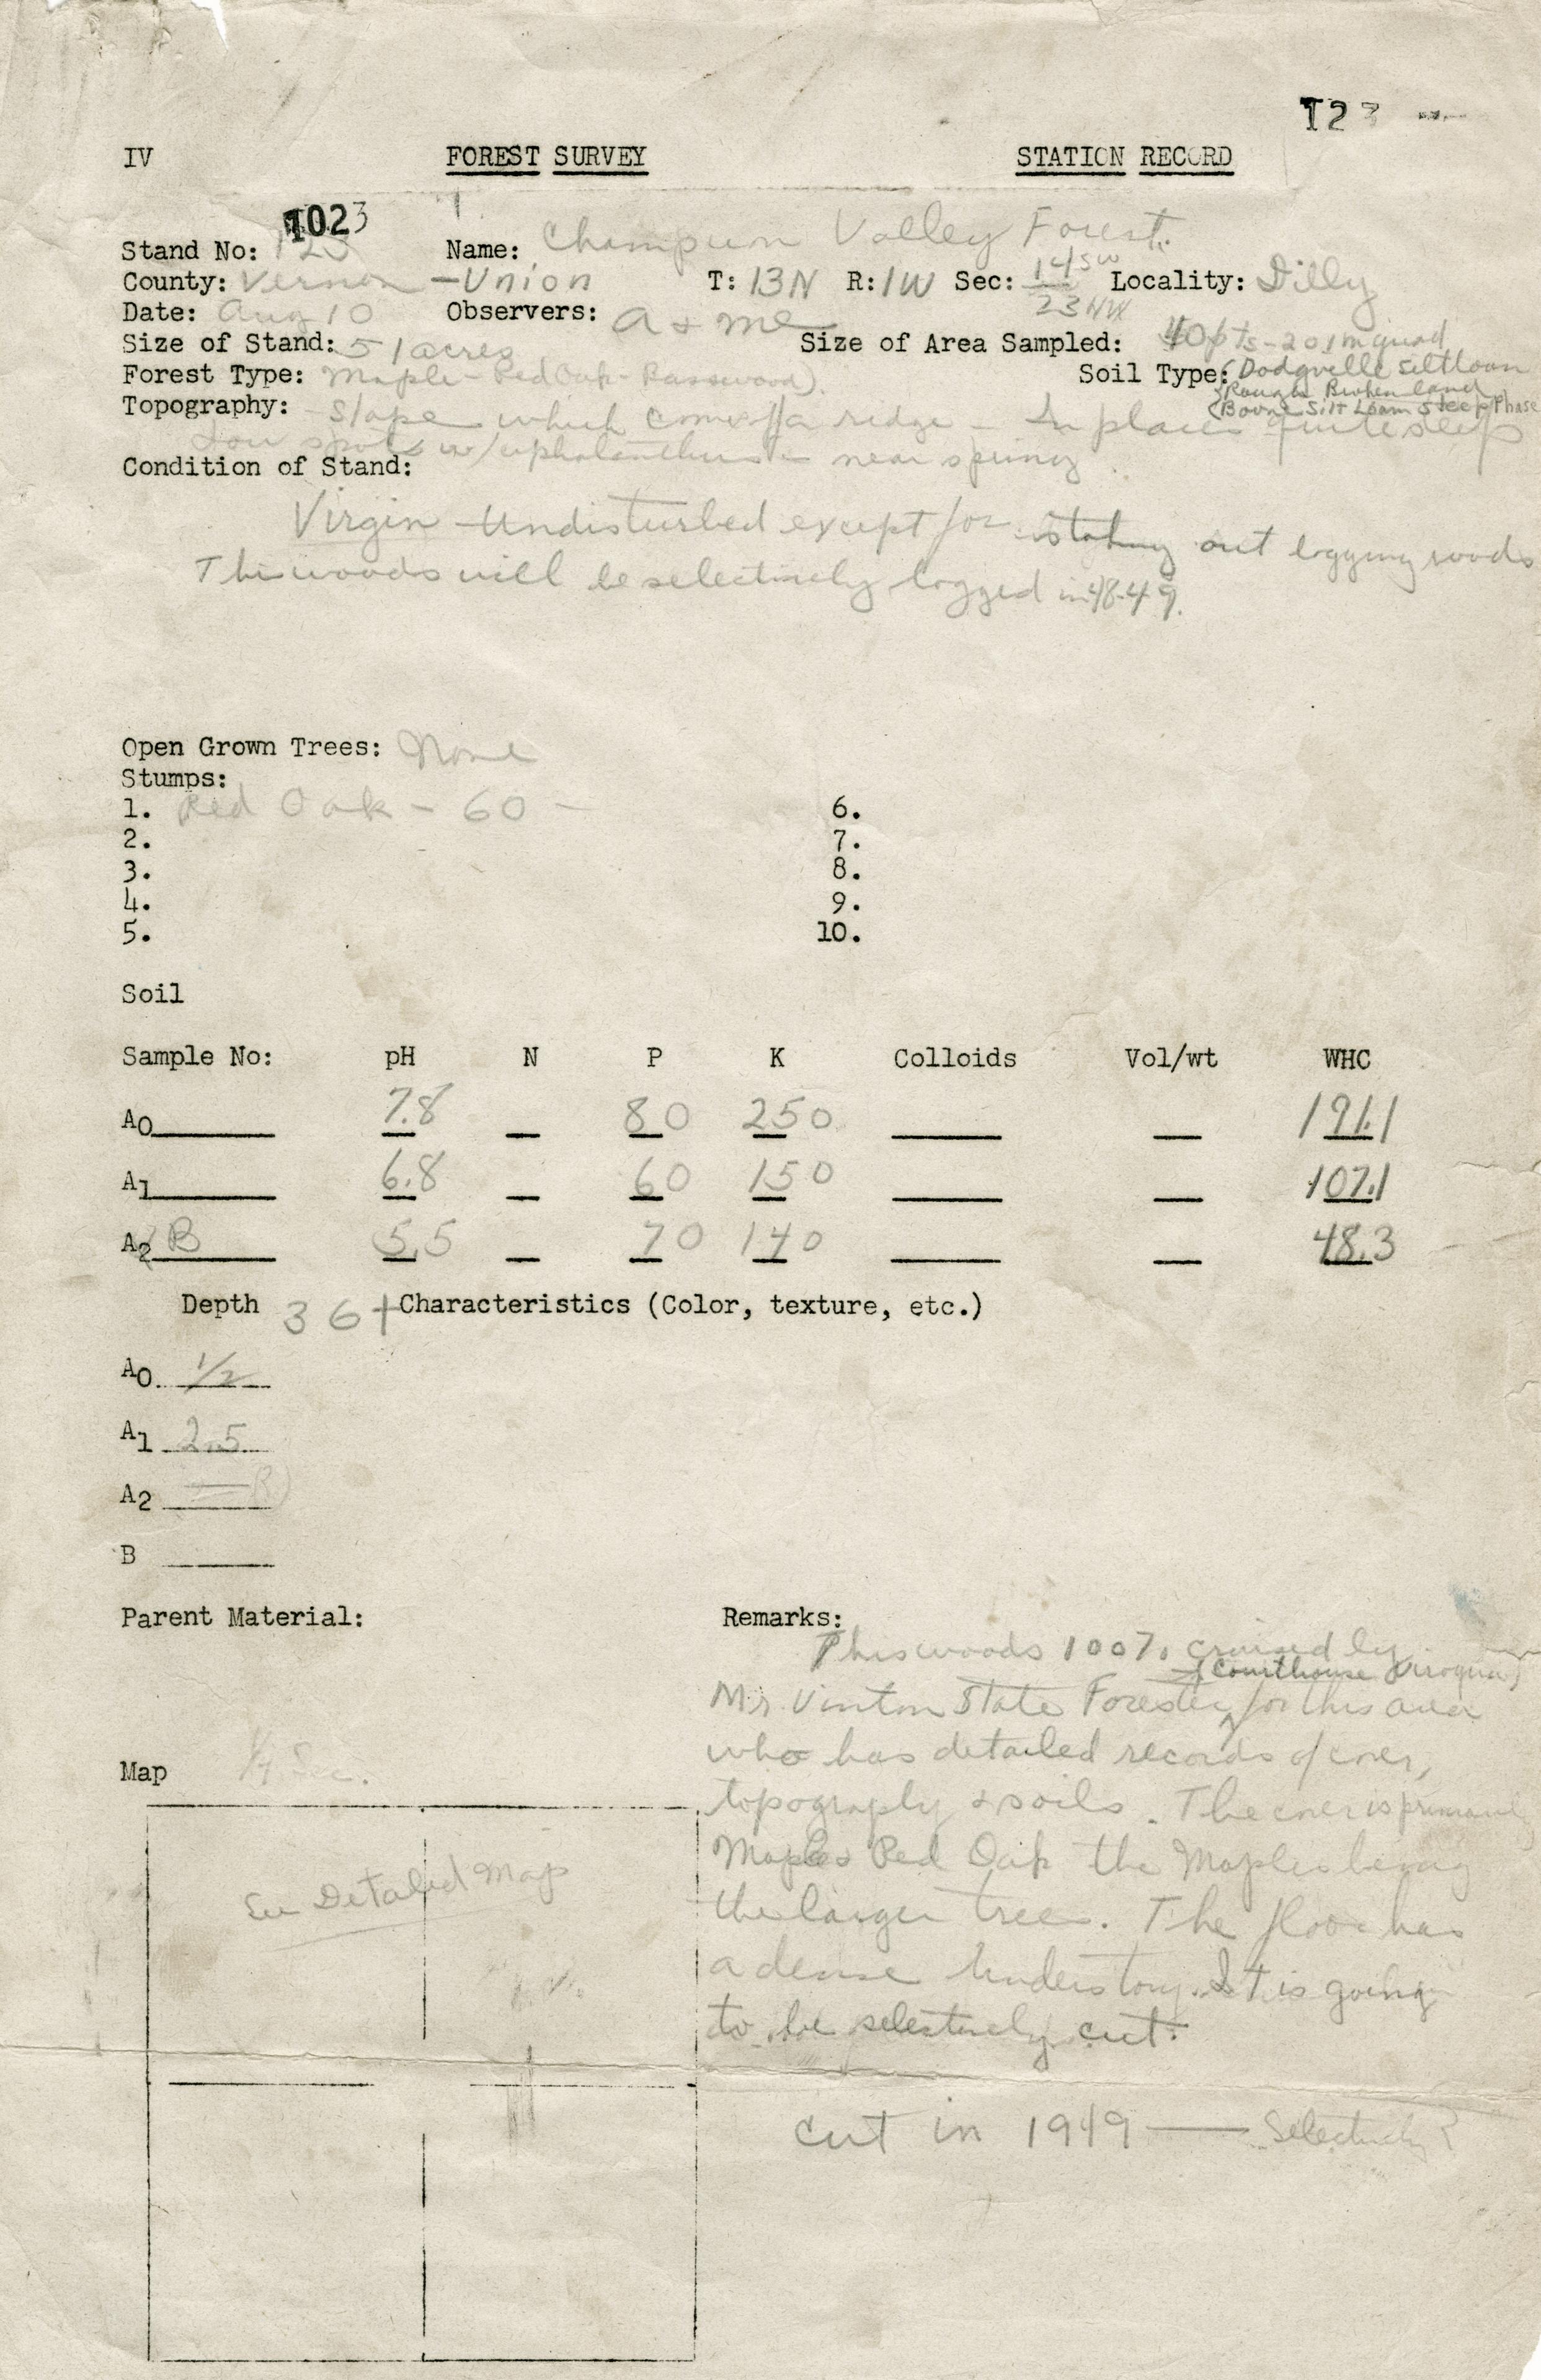 T23
IV FOREST SURVEY STATION RECORD
1023
Stand No: 123 Name: Champion Valley Forest.
County: Vernon - Union T: 13N R: 1W Sec: 14SW Locality: Dilly
23NW
Date: Aug 10 Observers: A + Mc
Size of Stand: 51 acres Size of Area Sampled: 40pts - 20 1m quad
Forest Type: Maple - Red Oak - Basswood). Soil Type: (Dodgville siltloam
(Rough Broken land
(Boone Silt Loam Steep Phase
Topography: Slope which comes off a ridge - In places quite steep
Low spots w/cephalanthus - near spring
Condition of Stand:
Virgin - Undisturbed except for staking out logging roads
This woods will be selectively logged in 48-49.
Open Grown Trees: None
Stumps:
1. Red Oak - 60 - 6.
2. 7.
3. 8.
4. 9.
5. 10.
Soil
Sample No: pH N P K Colloids Vol/wt WHC
A0 7.8 80 250 191.1
A1 6.8 60 150 107.1
A2 B 5.5 70 140 48.3
Depth 36+ Characteristics (Color, texture, etc.)
A0 1/2
A1 2.5
A2 B)
B
Parent Material: Remarks:
This woods 100% cruised by
(Courthouse Viroqua)
Mr Vinton State Forester for this area
who has detailed records of cover,
topography & soils. The cover is primarily
Maples Red Oak the Maples being
the larger trees. The floor has
a dense understory. It is going
to be selectively cut.
cut in 1949 — Selectively?
Map 1/4 Sec.
See Detailed Map